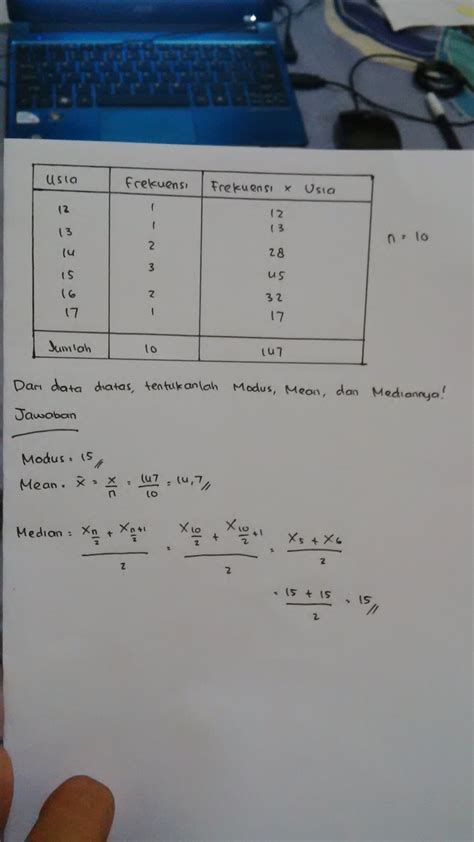 Usia Frekuensi Frekuensi x Usia
12 1 12
13 1 13
14 2 28
15 3 45
16 2 32
17 1 17
Jumlah 10 147
n = 10
Dari data diatas, tentukanlah Modus, Mean, dan Mediannya!
Jawaban
Modus = 15 //
Mean = x̄ = x/n = 147/10 = 14,7 //
Median = (X n/2 + X n+1/2)/2 = (X 10/2 + X 10/2 +1)/2 = (X5 + X6)/2
= (15 + 15)/2 = 15 //